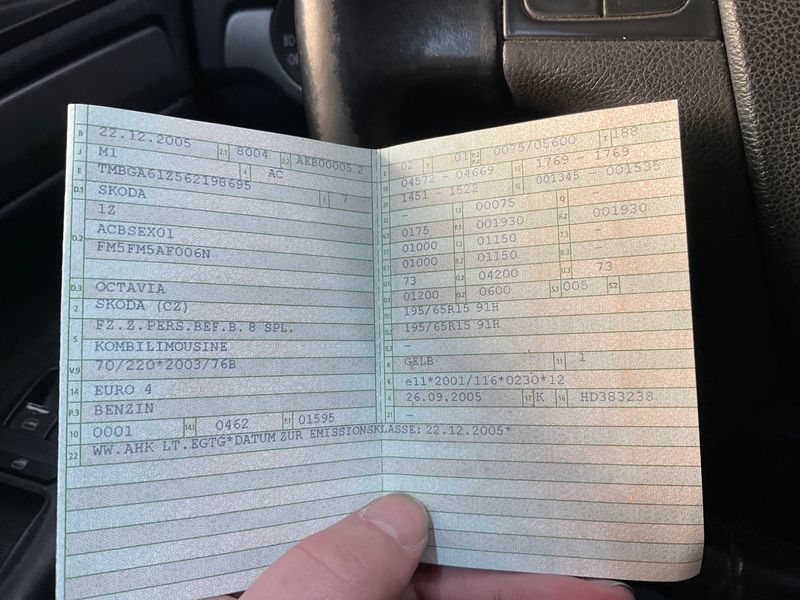 B 22.12.2005 2.1 8004 2.2 AEB00005 2
J M1 4 AC
E TMBGA61Z562198695 3 7
D.1 SKODA
1Z
D.2 ACBSEX01
FM5FM5AF006N
D.3 OCTAVIA
2 SKODA (CZ)
5 FZ.Z.PERS.BEF.B. 8 SPL.
KOMBILIMOUSINE
V.9 70/220*2003/76B
14 EURO 4
P.3 BENZIN
10 0001 14.1 0462 P.1 01595
22 WW.AHK LT.EGTG*DATUM ZUR EMISSIONSKLASSE: 22.12.2005*
L 02 9 01 P.2 P.4 0075/05600 T 188
18 04572 - 04669 19 1769 - 1769
20 1451 - 1522 G 001345 - 001535
12 - 13 00075 Q -
V.7 0175 F.1 001930 F.2 001930
7.1 01000 7.2 01150 7.3 -
8.1 01000 8.2 01150 8.3 -
U.1 73 U.2 04200 U.3 73
O.1 01200 O.2 0600 S.1 005 S.2
15.1 195/65R15 91H
15.2 195/65R15 91H
15.3 -
R GELB 11 1
K e11*2001/116*0230*12
6 26.09.2005 17 K 16 HD383238
21 -